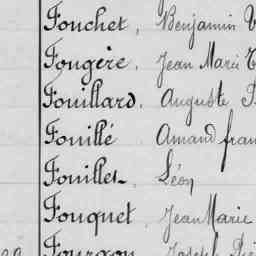 Fouchet, Benjamin
Fougère, Jean Marie
Fouillard, Auguste
Fouillé Amand fran
Fouillet, Léon
Fouquet, Jean Marie
Fourgon, Joseph